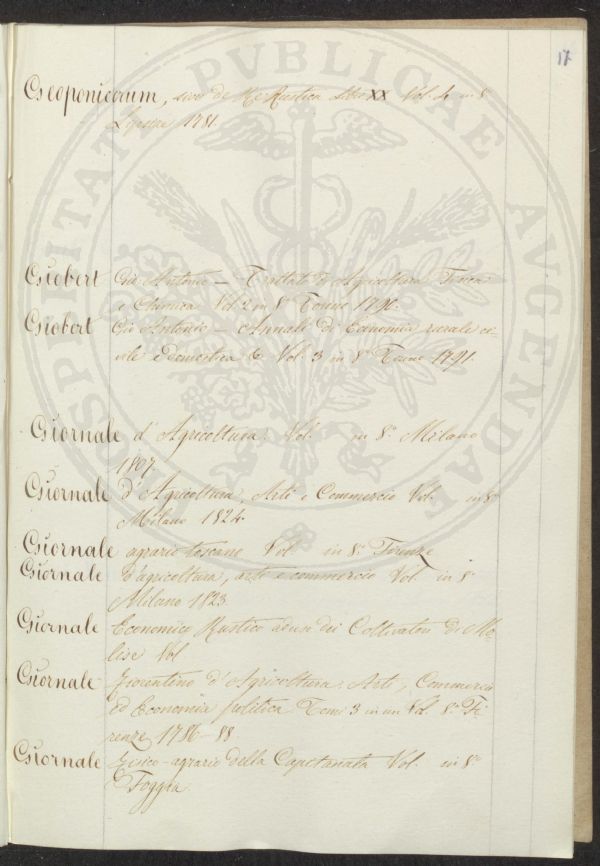 17
Geoponicorum, sive de Re Rustica Libri XX Vol. 4 in 8
Lipsiae 1781.
Giobert Gio Antonio — Trattato di Agricoltura Fisica
e Chimica Vol. 2 in 8° Torino 1790.
Giobert Gio Antonio — Annali di Economia rurale ci-
vile e domestica & Vol. 3 in 8° Torino 1791.
Giornale d'Agricoltura. Vol. in 8.° Milano
1807.
Giornale d'Agricoltura, Arti e Commercio Vol. in 8°
Milano 1824.
Giornale agrario toscano Vol in 8.° Firenze
Giornale d'agricoltura, arti e commercio Vol. in 8°
Milano 1823.
Giornale Economico Rustico ad uso dei Coltivatori di Mo-
lise Vol
Giornale fiorentino d'Agricoltura, Arti, Commercio
ed Economia politica Tomi 3 in un Vol. 8.° Fi-
renze 1786-88.
Giornale fisico-agrario della Capitanata Vol. in 8°
Foggia.
PROSPERITATI PVBLICAE AVGENDAE